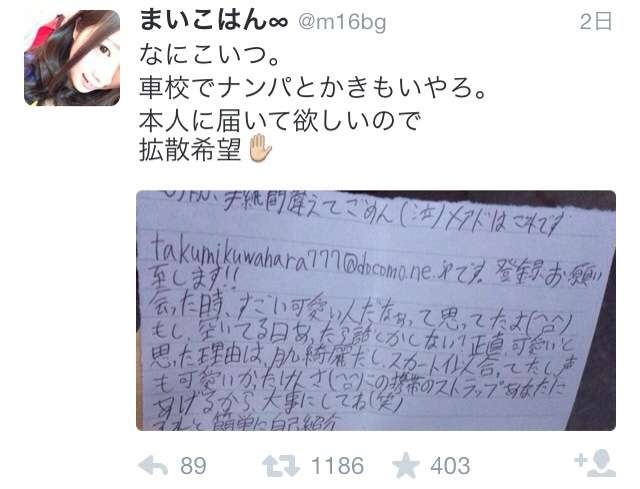 まいこはん∞ @m16bg 2日
なにこいつ。
車校でナンパとかきもいやろ。
本人に届いて欲しいので
拡散希望✋
手紙間違えてごめん(泣)メアドはこれです
takumikuwahara777@docomo.ne.jpです。登録お願い
至します!!
会った時、すごい可愛い人だなぁって思ってたよ(^^)
もし、空いてる日あったら話とかしない?正直、可愛いと
思った理由は、肌綺麗だし、スカート似合ってたし、声
も可愛いかったけんさ(^^)この携帯のストラップあなたに
あげるから、大事にしてね(笑)
簡単に自己紹介
89 1186 403